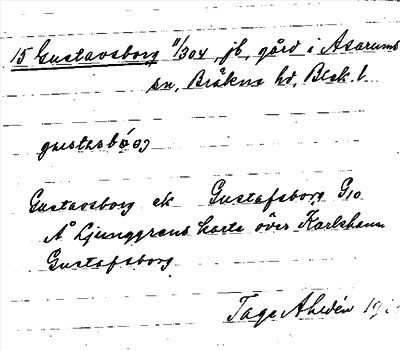 15 Gustavsborg 11/304, jb, gård i Asarums
sn, Bräkne hd, Blek. l.
gustasbórj
Gustavsborg ek Gustafsborg G10
A Ljunggrens karta över Karlshamn
Gustafsborg
Tage Ahldén 19